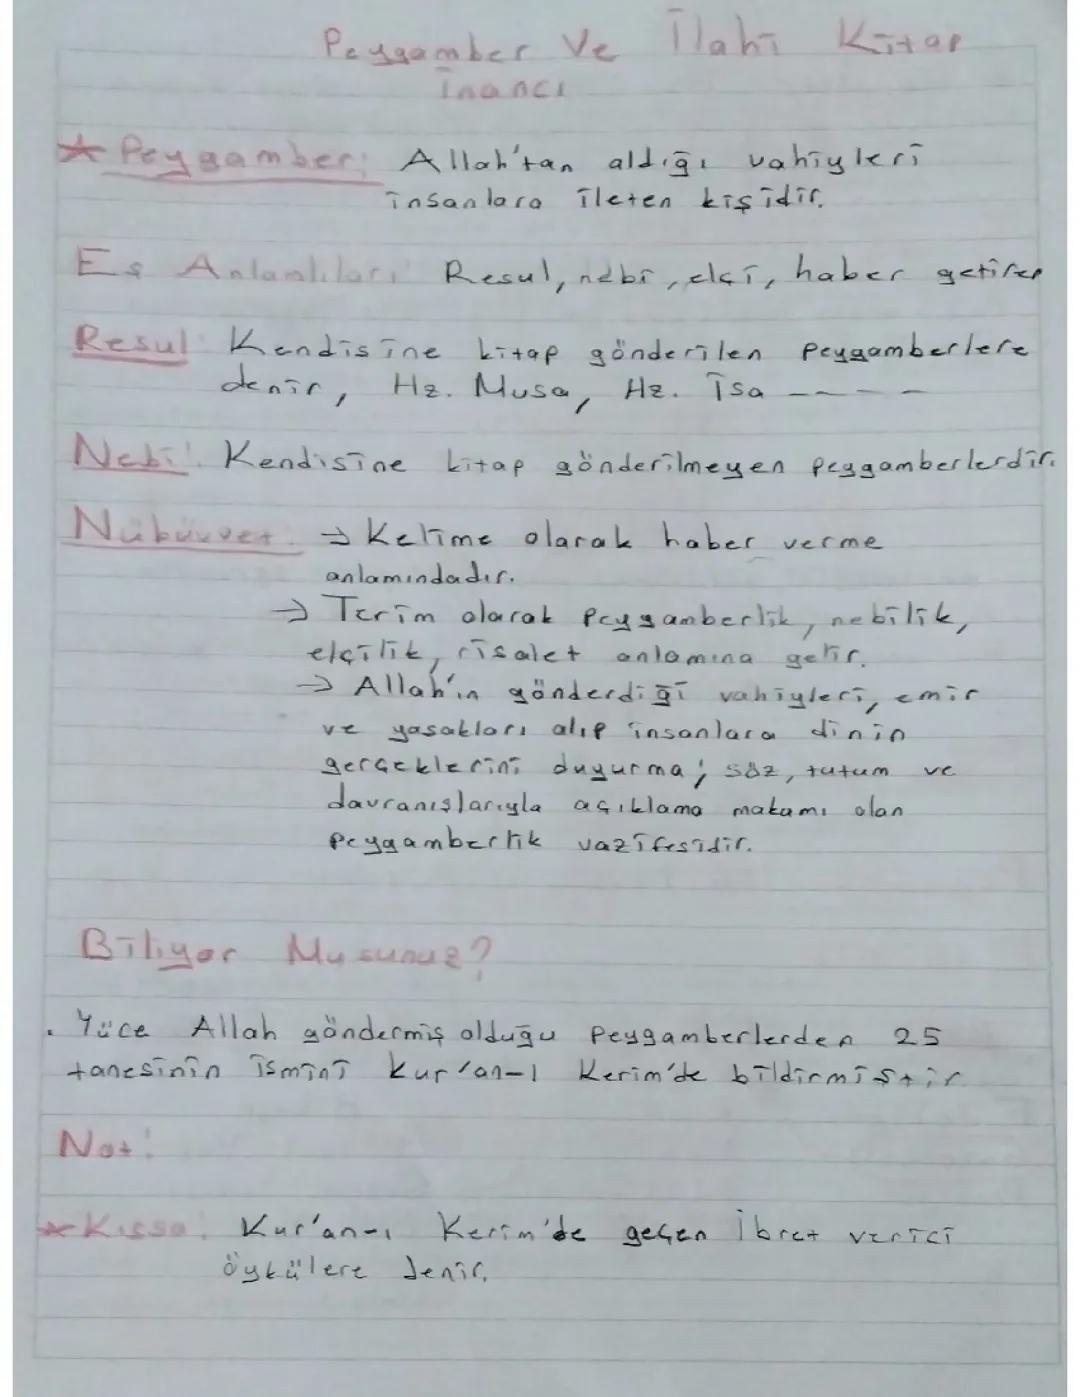 Peygamber Ve İlahi Kitap
İnancı
* Peygamber: Allah'tan aldığı vahiyleri
insanlara ileten kişidir.
Eş Anlamlıları: Resul, nebi, elçi, haber getiren
Resul: Kendisine kitap gönderilen peygamberlere
denir, Hz. Musa, Hz. İsa -----
Nebi: Kendisine kitap gönderilmeyen peygamberlerdir.
Nübüvvet: → Kelime olarak haber verme
anlamındadır.
→ Terim olarak peygamberlik, nebilik,
elçilik, risalet anlamına gelir.
→ Allah'ın gönderdiği vahiyleri, emir
ve yasakları alıp insanlara dinin
gerçeklerini duyurma; söz, tutum ve
davranışlarıyla açıklama makamı olan
peygamberlik vazifesidir.
Biliyor Musunuz?
. Yüce Allah göndermiş olduğu peygamberlerden 25
tanesinin ismini Kur'an-ı Kerim'de bildirmiştir
Not:
* Kıssa: Kur'an-ı Kerim'de geçen İbret verici
öykülere denir.